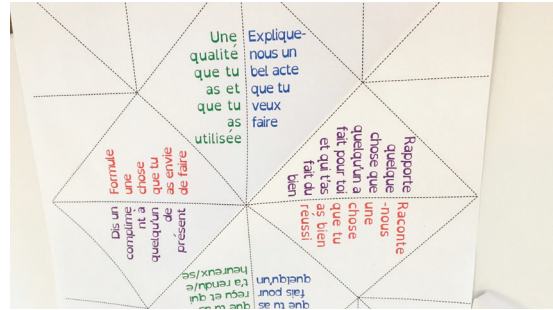 Une
qualité
que tu
as et
que tu
as
utilisée
Explique-
nous un
bel acte
que tu
veux
faire
Rapporte
quelque
chose que
quelqu'un a
fait pour toi
et qui t'as
fait du
bien
Raconte
-nous
une
chose
que tu
as bien
réussi
que tu as
fais pour
quelqu'un
que tu as
reçu et qui
t'a rendu/e
heureux/se
Dis un
complime
nt à
quelqu'un
de
présent
Formule
une
chose
que tu
as envie
de faire